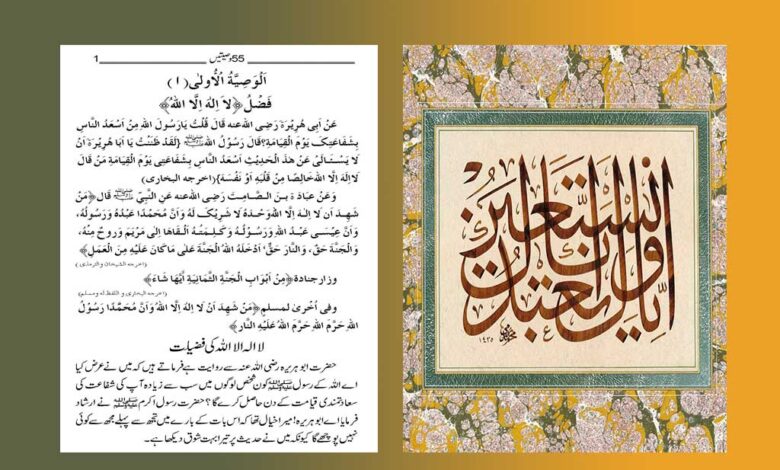 55 وصیتیں 1
اَلْوَصِيَّةُ الْأُولٰى (۱)
فَضْلُ ﴿لاَ اِلٰهَ اِلَّا اللهُ﴾
عَنْ اَبِى هُرَيْرَةَ رَضِىَ اللهُ عنه قَالَ قُلْتُ يَارَسُوْلَ اللهِ مِنْ اَسْعَدُ النَّاسِ
بِشَفَاعَتِكَ يَوْمَ الْقِيَامَةِ؟قَالَ رَسُوْلُ اللهِ ﷺ {لَقَدْ ظَنَنْتُ يَا اَبَا هُرَيْرَةَ اَنْ
لَا يَسْئَالَنِىْ عَنْ هٰذَ الْحَدِيْثِ اَسْعَدُ النَّاسِ بِشَفَاعَتِىْ يَوْمَ الْقِيَامَةِ مَنْ قَالَ
لَا اِلٰهَ اِلَّا اللهُ خَالِصًا مِنْ قَلْبِهٖ اَوْ نَفْسَهٗ}(اخرجه البخارى)
وَعَنْ عبَادَةَ بنَ الصَّامتِ رَضى اللهُ عنه عَنِ النَّبِىِّ ﷺ قَالَ ﴿مَنْ
شَهِدَ اَن لَا اِلٰهَ اِلَّا اللهُ وَحْدَهٗ لَا شَرِيْكَ لَهٗ وَ اَنَّ مُحَمَّدًا عَبْدُهٗ وَرَسُوْلُهٗ،
وَاَنَّ عِيْسٰى عَبْدُ اللهِ وَرَسُوْلُهٗ وَ كَلِمَتُهٗ اَلْقَاهَا اِلٰى مَرْيَمَ وَرُوحٌ مِنْهُ،
وَالْجَنَّةَ حَقٌّ، وَالنَّارَ حَقٌّ، اَدْخَلَهُ اللهُ الْجَنَّةَ عَلٰى مَاكَانَ عَلَيْهِ مِنَ الْعَمَلِ﴾
(اخرجه الشيخان و الترمذى)
وزارجنادة﴿مِنْ اَبْوَابِ الْجَنَّةِ الثَّمَانِيَةِ اَيُّهَا شَاءَ﴾
(اخرجه البخارى و اللفظ له ومسلم)
وفى اُخْرىٰ لمسلم﴿مَنْ شَهِدَ اَنْ لَا اِلٰهَ اِلَّا اللهُ وَاَنَّ مُحَمَّدًا رَسُوْلُ
اللهِ حَرَّمَ اللهُ حَرَّمَ اللهُ عَلَيْهِ النَّارَ﴾
لا الہ الا اللہ کی فضیلت
حضرت ابوہریرہ رضی اللہ عنہ سے روایت ہے فرماتے ہیں کہ میں نے عرض کیا
اے اللہ کے رسول ﷺ کون شخص لوگوں میں سب سے زیادہ آپ کی شفاعت کی
سعادتمندی قیامت کے دن حاصل کرے گا؟ حضرت رسول اکرم ﷺ نے ارشاد
فرمایا اے ابوہریرہ! میرا خیال تھا کہ اس بات کے بارے میں تجھ سے پہلے مجھ سے کوئی
نہیں پوچھے گا کیونکہ میں نے حدیث پر تیرا بہت شوق دیکھا ہے۔
اياك نعبد
واياك نستعين
١٤٣٥